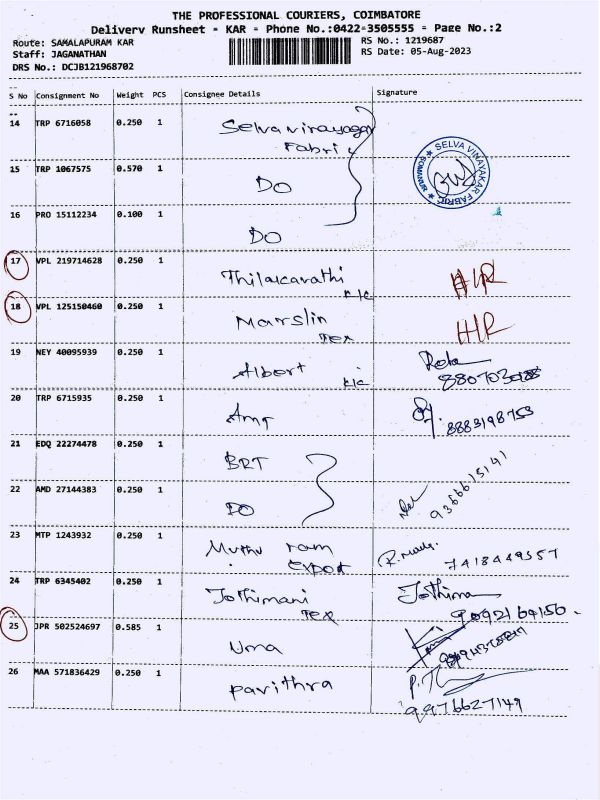 THE PROFESSIONAL COURIERS, COIMBATORE
Delivery Runsheet - KAR - Phone No.:0422-3505555 - Page No.:2
Route: SAMALAPURAM KAR
RS No.: 1219687
Staff: JAGANATHAN
RS Date: 05-Aug-2023
DRS No.: DCJB121968702
S No Consignment No Weight PCS Consignee Details Signature
14 TRP 6716058 0.250 1 Selvavinayagar
Fabric
SELVA VINAYAKAR FABRIC
SOMANUR
15 TRP 1067575 0.570 1 DO
16 PRO 15112234 0.100 1 DO
17 VPL 219714628 0.250 1 Thilakavathi
K/C
18 VPL 125150460 0.250 1 Marslin
Tex
19 NEY 40095939 0.250 1 Albert K/C
20 TRP 6715935 0.250 1 8883198753
21 EDQ 22274478 0.250 1 BRT
22 AMD 27144383 0.250 1 DO 9366615141
23 MTP 1243932 0.250 1 Muthu ram
Export
7418449557
24 TRP 6345402 0.250 1 Jothimani
Tex
Jothima
9092164156.
25 JPR 502524697 0.585 1 Uma
26 MAA 571836429 0.250 1 Pavithra
9976627149